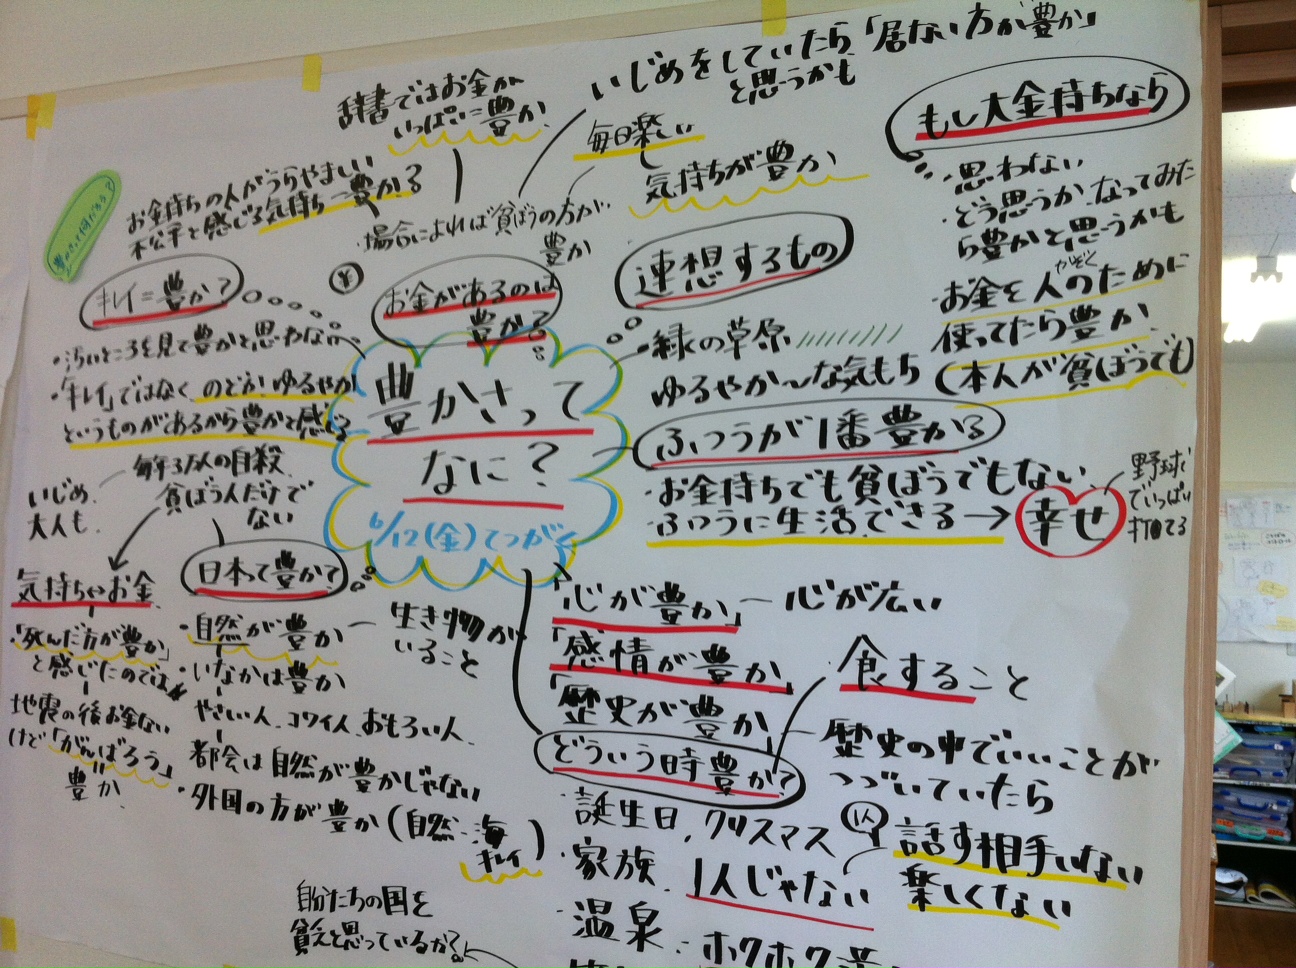 いじめをしていたら「居ない方が豊か」
と思うかも
辞書ではお金が
いっぱい＝豊か
毎日楽しい
気持ちが豊か
お金持ちの人がうらやましい
不公平と感じる気持ち＝豊か？
場合によれば貧ぼうの方が
豊か
もし大金持ちなら
・思わない
・どう思うか、なってみた
ら豊かと思うかも
かぞく
・お金を人のために
使ってたら豊か
(本人が貧ぼうでも)
キレイ＝豊か？
・汚いところを見て豊かと思わない
・「キレイ」ではなく のどか、ゆるやか
というものがあるから豊かと感じる
¥
お金があるのは
豊か？
連想するもの
緑の草原
ゆるやか〜な気もち
豊かさって
なに？
6/12(金)てつがく
ふつうが1番豊か？
・お金持ちでも貧ぼうでもない
・ふつうに生活できる→幸せ
野球で
いっぱい
打てる
毎年3万人の自殺
貧ぼう人だけで
ない
いじめ
大人も
気持ち⇔お金
「死んだ方が豊か」
と感じたのでは
地震の後お金ない
けど「がんばろう」
豊か
日本って豊か？
・自然が豊か ー 生き物が
いること
・いなかは豊か
やさしい人、コワイ人、おもろい人
・都会は自然が豊かじゃない
・外国の方が豊か(自然・海
キレイ)
自分たちの国を
貧乏と思っているから？
「心が豊か」ー 心が広い
「感情が豊か」
「歴史が豊か」
食すること
歴史の中でいいことが
つづいていたら
どういう時豊か？
・誕生日、クリスマス
・家族
1人じゃない
囚
話す相手いない
楽しくない
・温泉